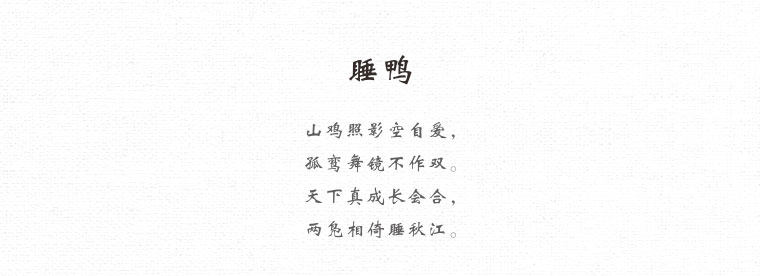 睡鸭
山鸡照影空自爱，
孤鸾舞镜不作双。
天下真成长会合，
两凫相倚睡秋江。